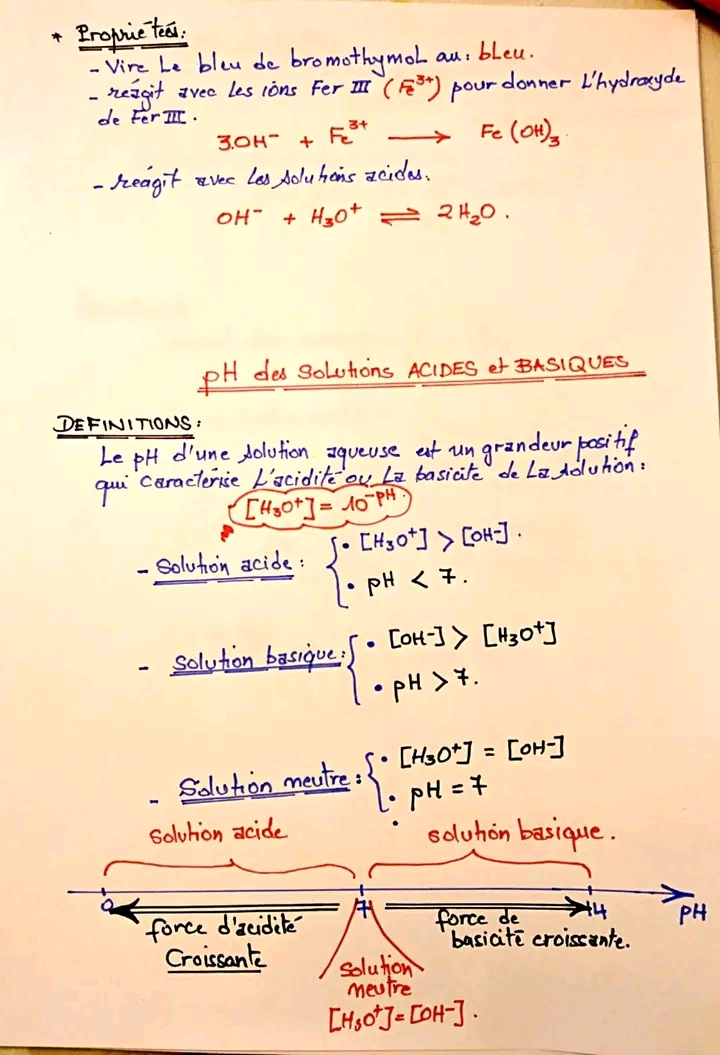 * Propriétés:
- Vire Le bleu de bromothymol au: bleu.
- réagit avec les ions Fer III (Fe³⁺) pour donner L'hydroxyde
de Fer III.
3.OH⁻ + Fe³⁺ ⟶ Fe(OH)₃.
- réagit avec les solutions acides.
OH⁻ + H₃O⁺ ⇌ 2H₂O.
pH des solutions ACIDES et BASIQUES
DEFINITIONS:
Le pH d'une solution aqueuse est un grandeur positif
qui caractérise L'acidité ou La basicité de La solution:
[H₃O⁺] = 10⁻ᵖᴴ.
- Solution acide: { • [H₃O⁺] > [OH⁻].
• pH < 7.
- Solution basique: { • [OH⁻] > [H₃O⁺]
• pH > 7.
- Solution neutre: { • [H₃O⁺] = [OH⁻]
• pH = 7
solution acide solution basique.
0 7 14 pH
force d'acidité force de
Croissante basicité croissante.
solution
neutre
[H₃O⁺]=[OH⁻].